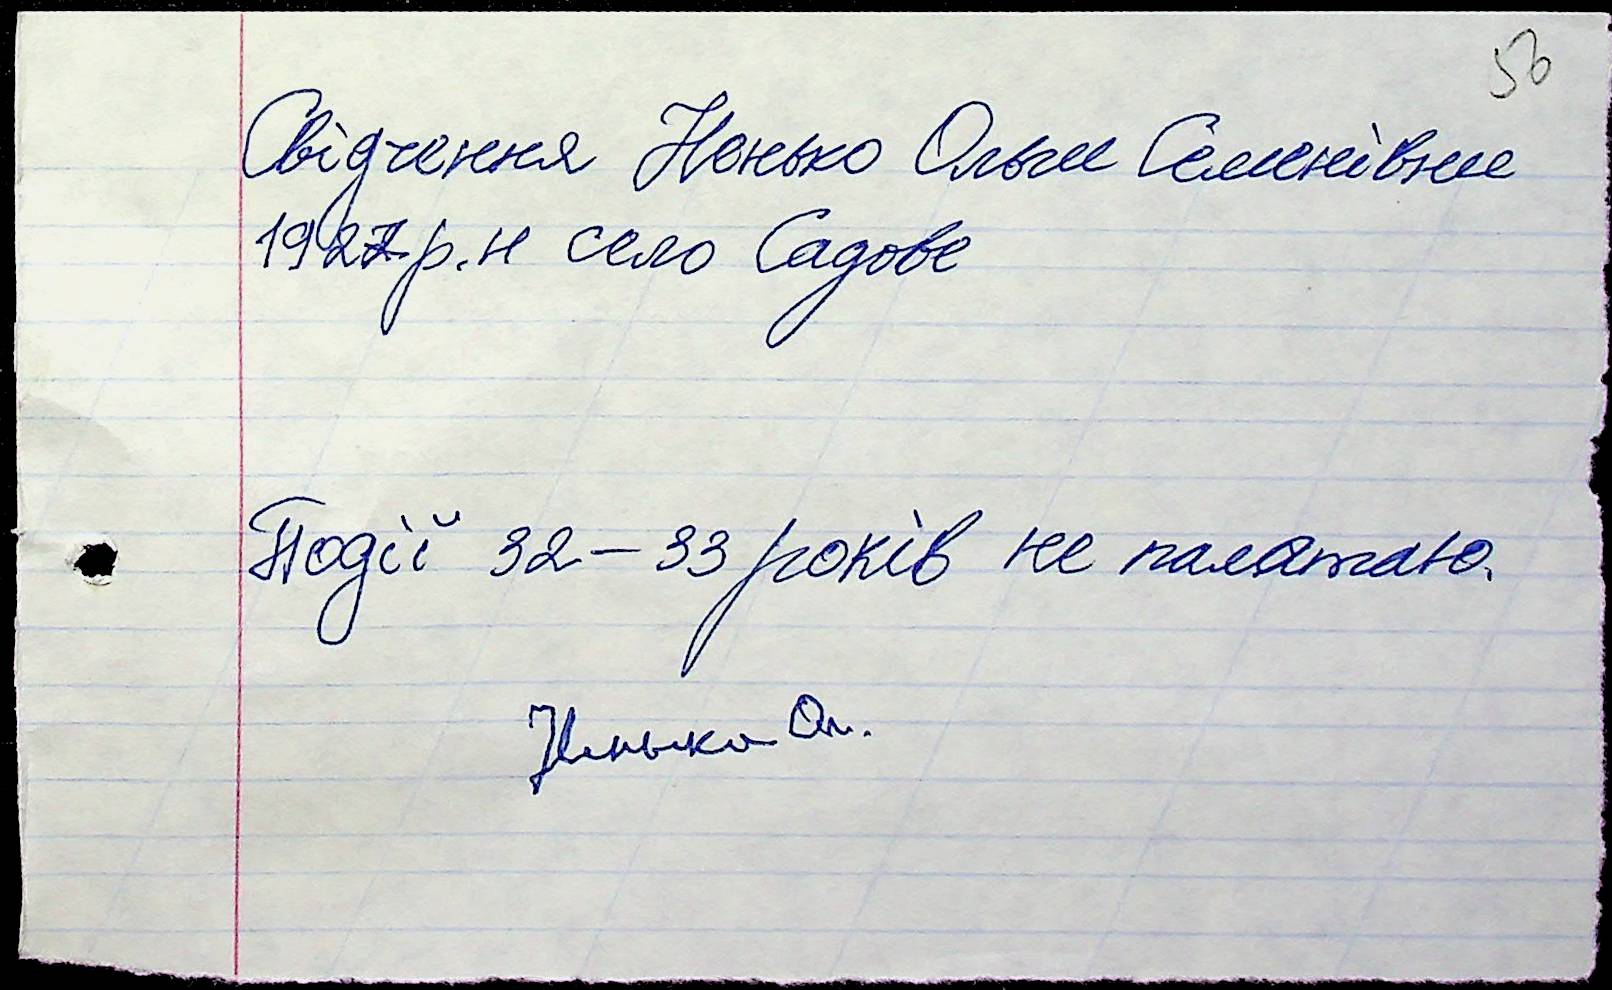 56
Свідчення Ненько Ольги Семенівни
1927 р.н село Садове
Події 32-33 років не памятаю.
Ненько Ол.